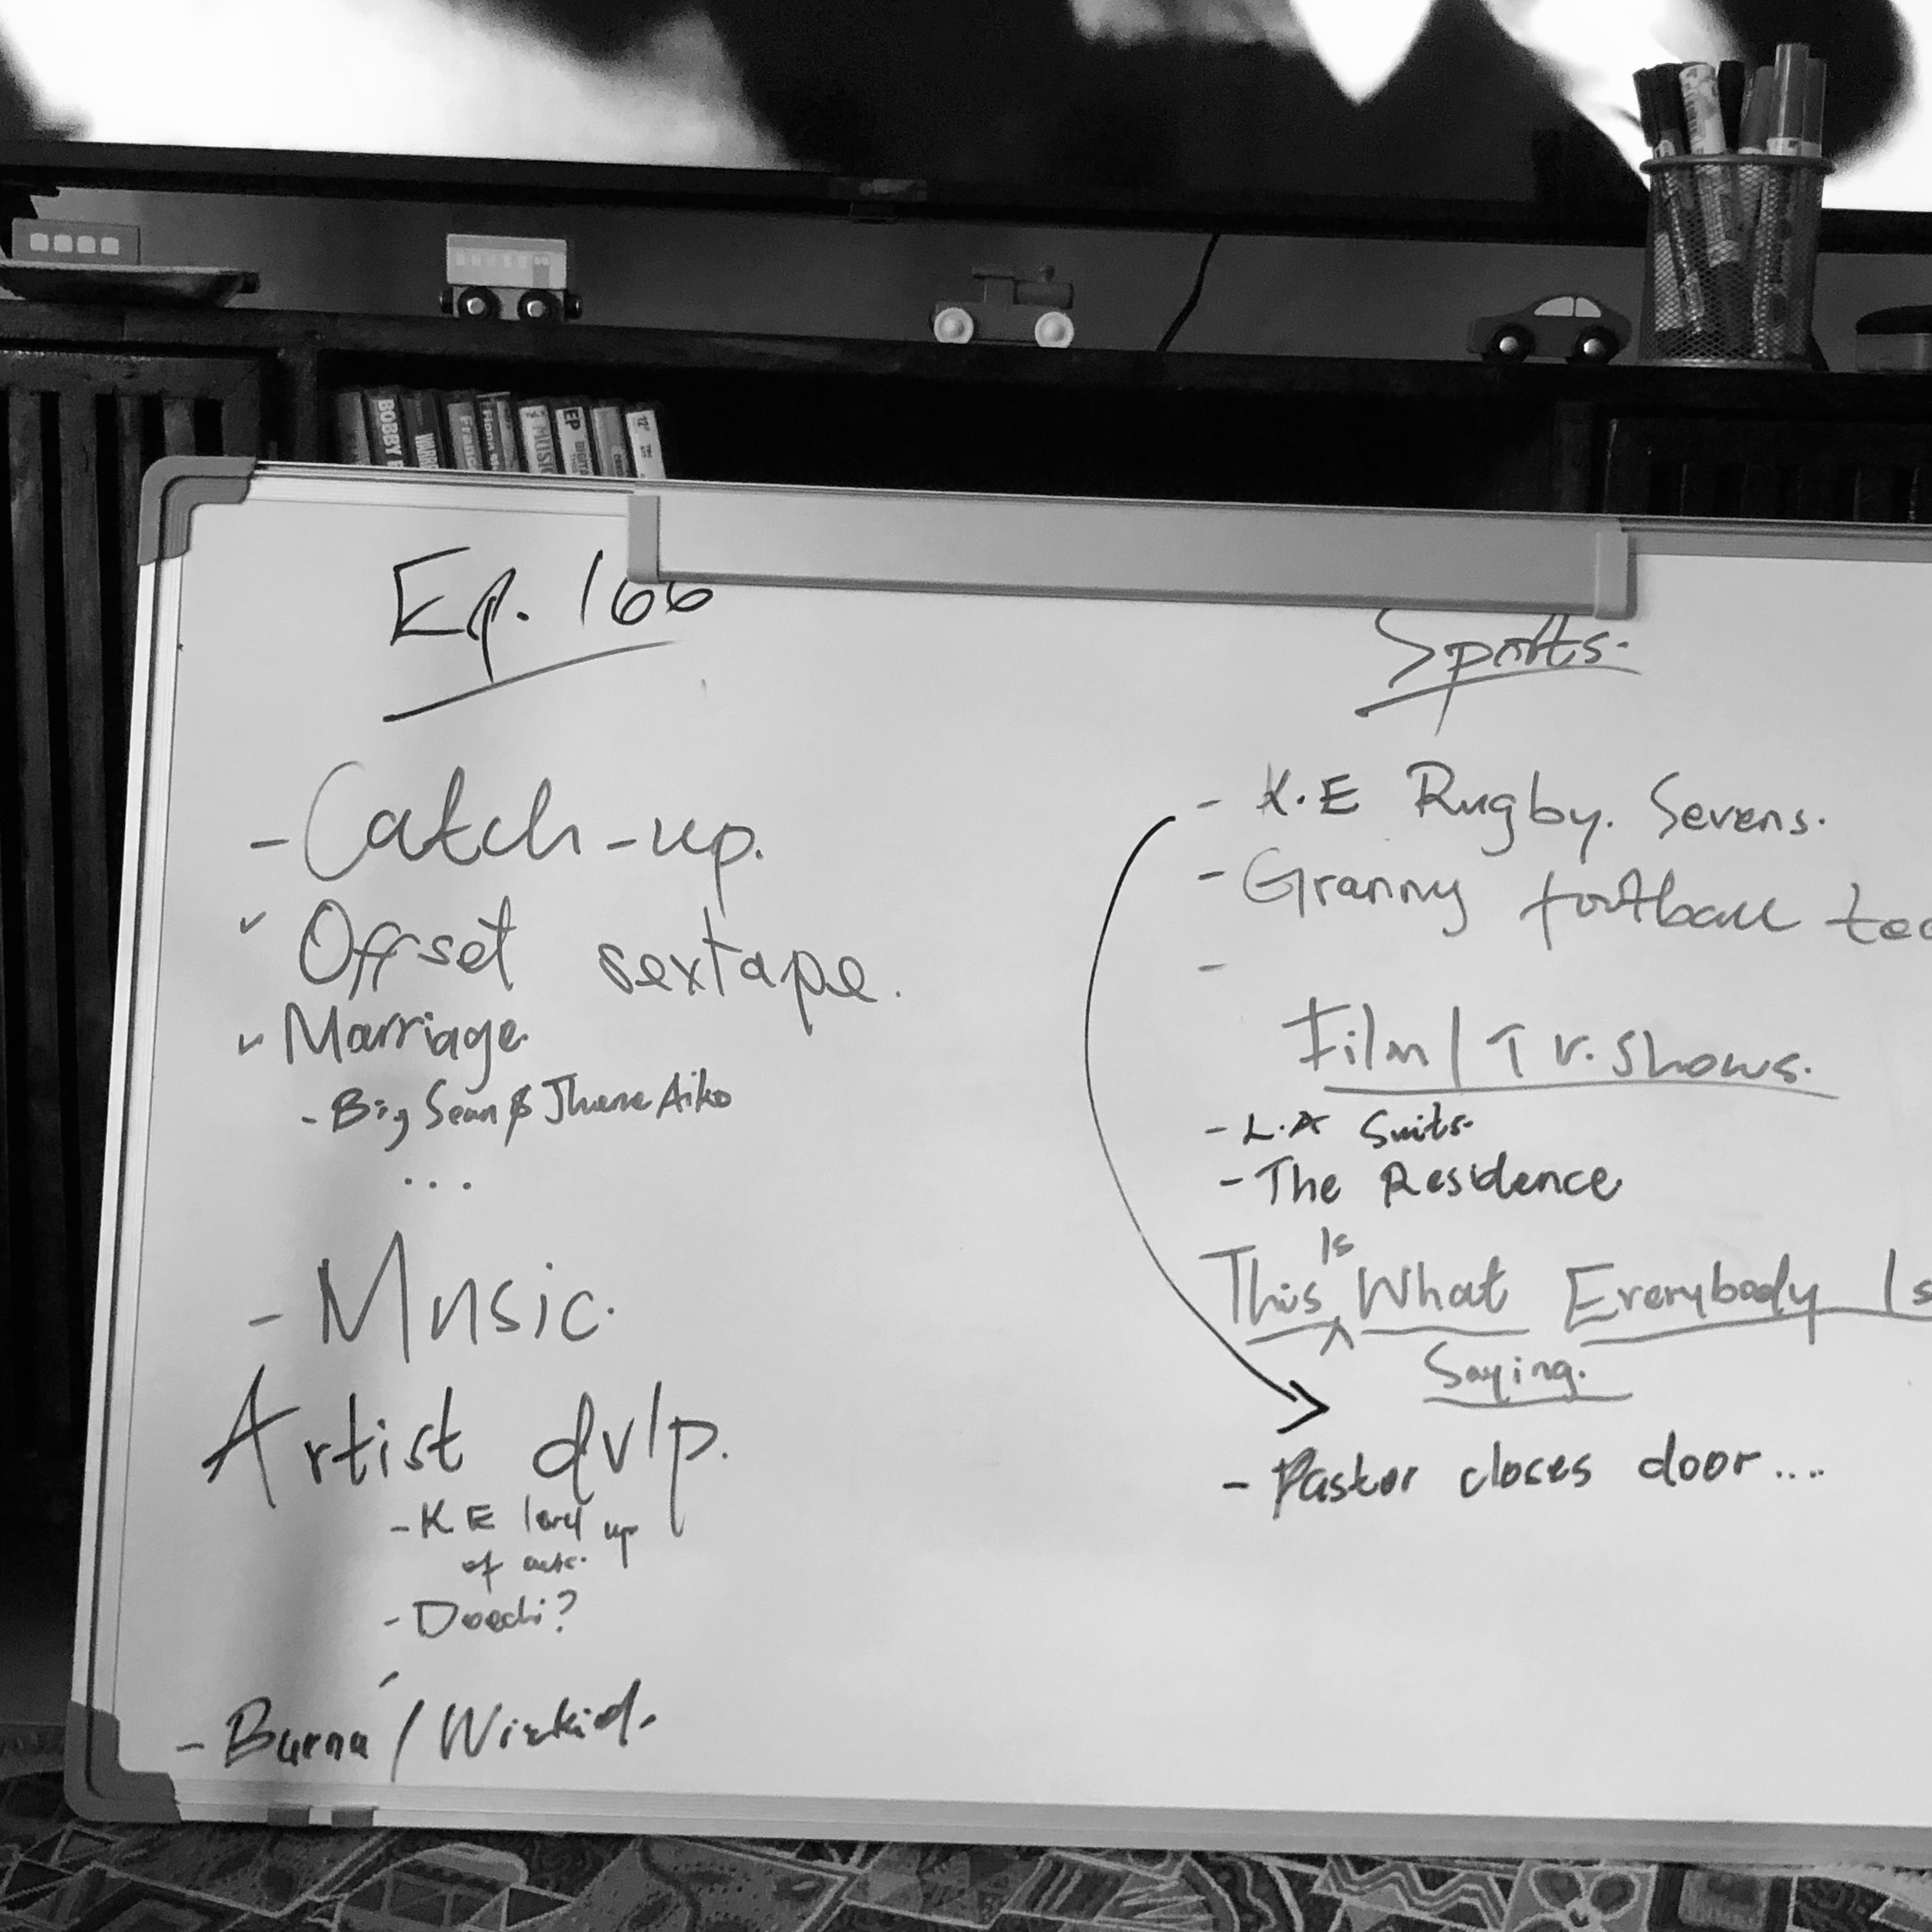 BOBBY
MUSIC
EP
12"
Ep. 166
- Catch-up.
✓ Offset sextape.
✓ Marriage
- Big Sean & Jhene Aiko
...
- Music.
Artist dvlp.
- K E level up
of
- Doechi?
-
- Burna / Wizkid.
Sports.
- K.E Rugby. Sevens.
- Granny football
-
Film / T V. Shows.
- L.A Suits.
- The Residence
Is
This ^ What Everybody Is
Saying.
- Pastor closes door....